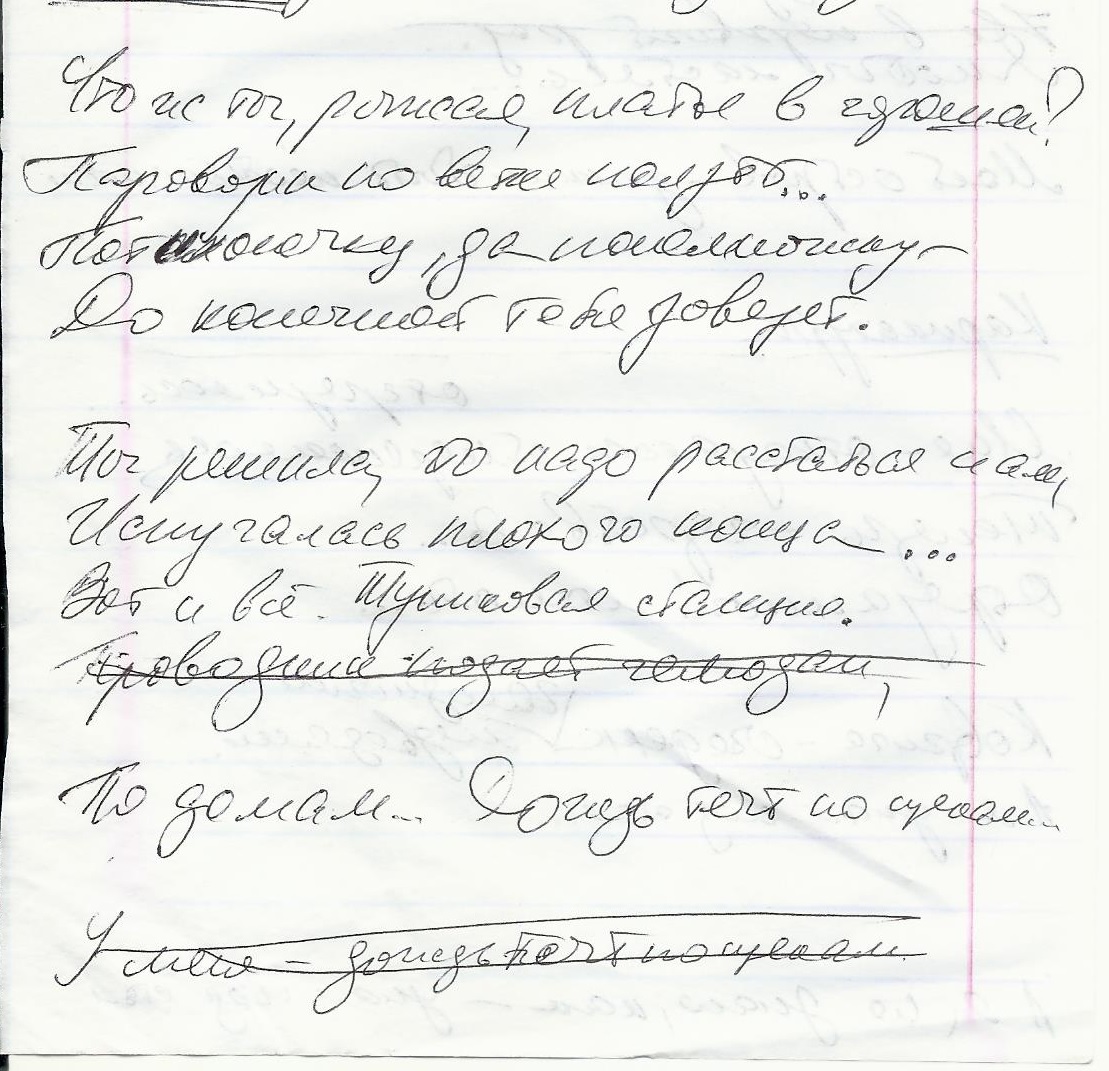 Что ж ты, рыжая, платье в горошек?
Паровозик по ветке ползёт...
Потихонечку, да понемножку –
До конечной тебя довезёт.
Ты решила, что надо расстаться нам,
Испугалась плохого конца...
Вот и всё. Тупиковая станция.
Проводник подаёт чемодан,
По домам... Дождь течёт по щекам...
У меня – дождь течёт по щекам.